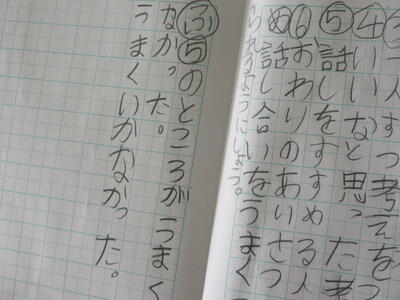 一人ずつ考えをつ
④いいなと思った考
⑤話しをすすめる人
⑥おわりのあいさつ
め話し合いをうまく
られるようにしよう。
ふ⑤のところがうまく
なかった。
うまくいかなかった。